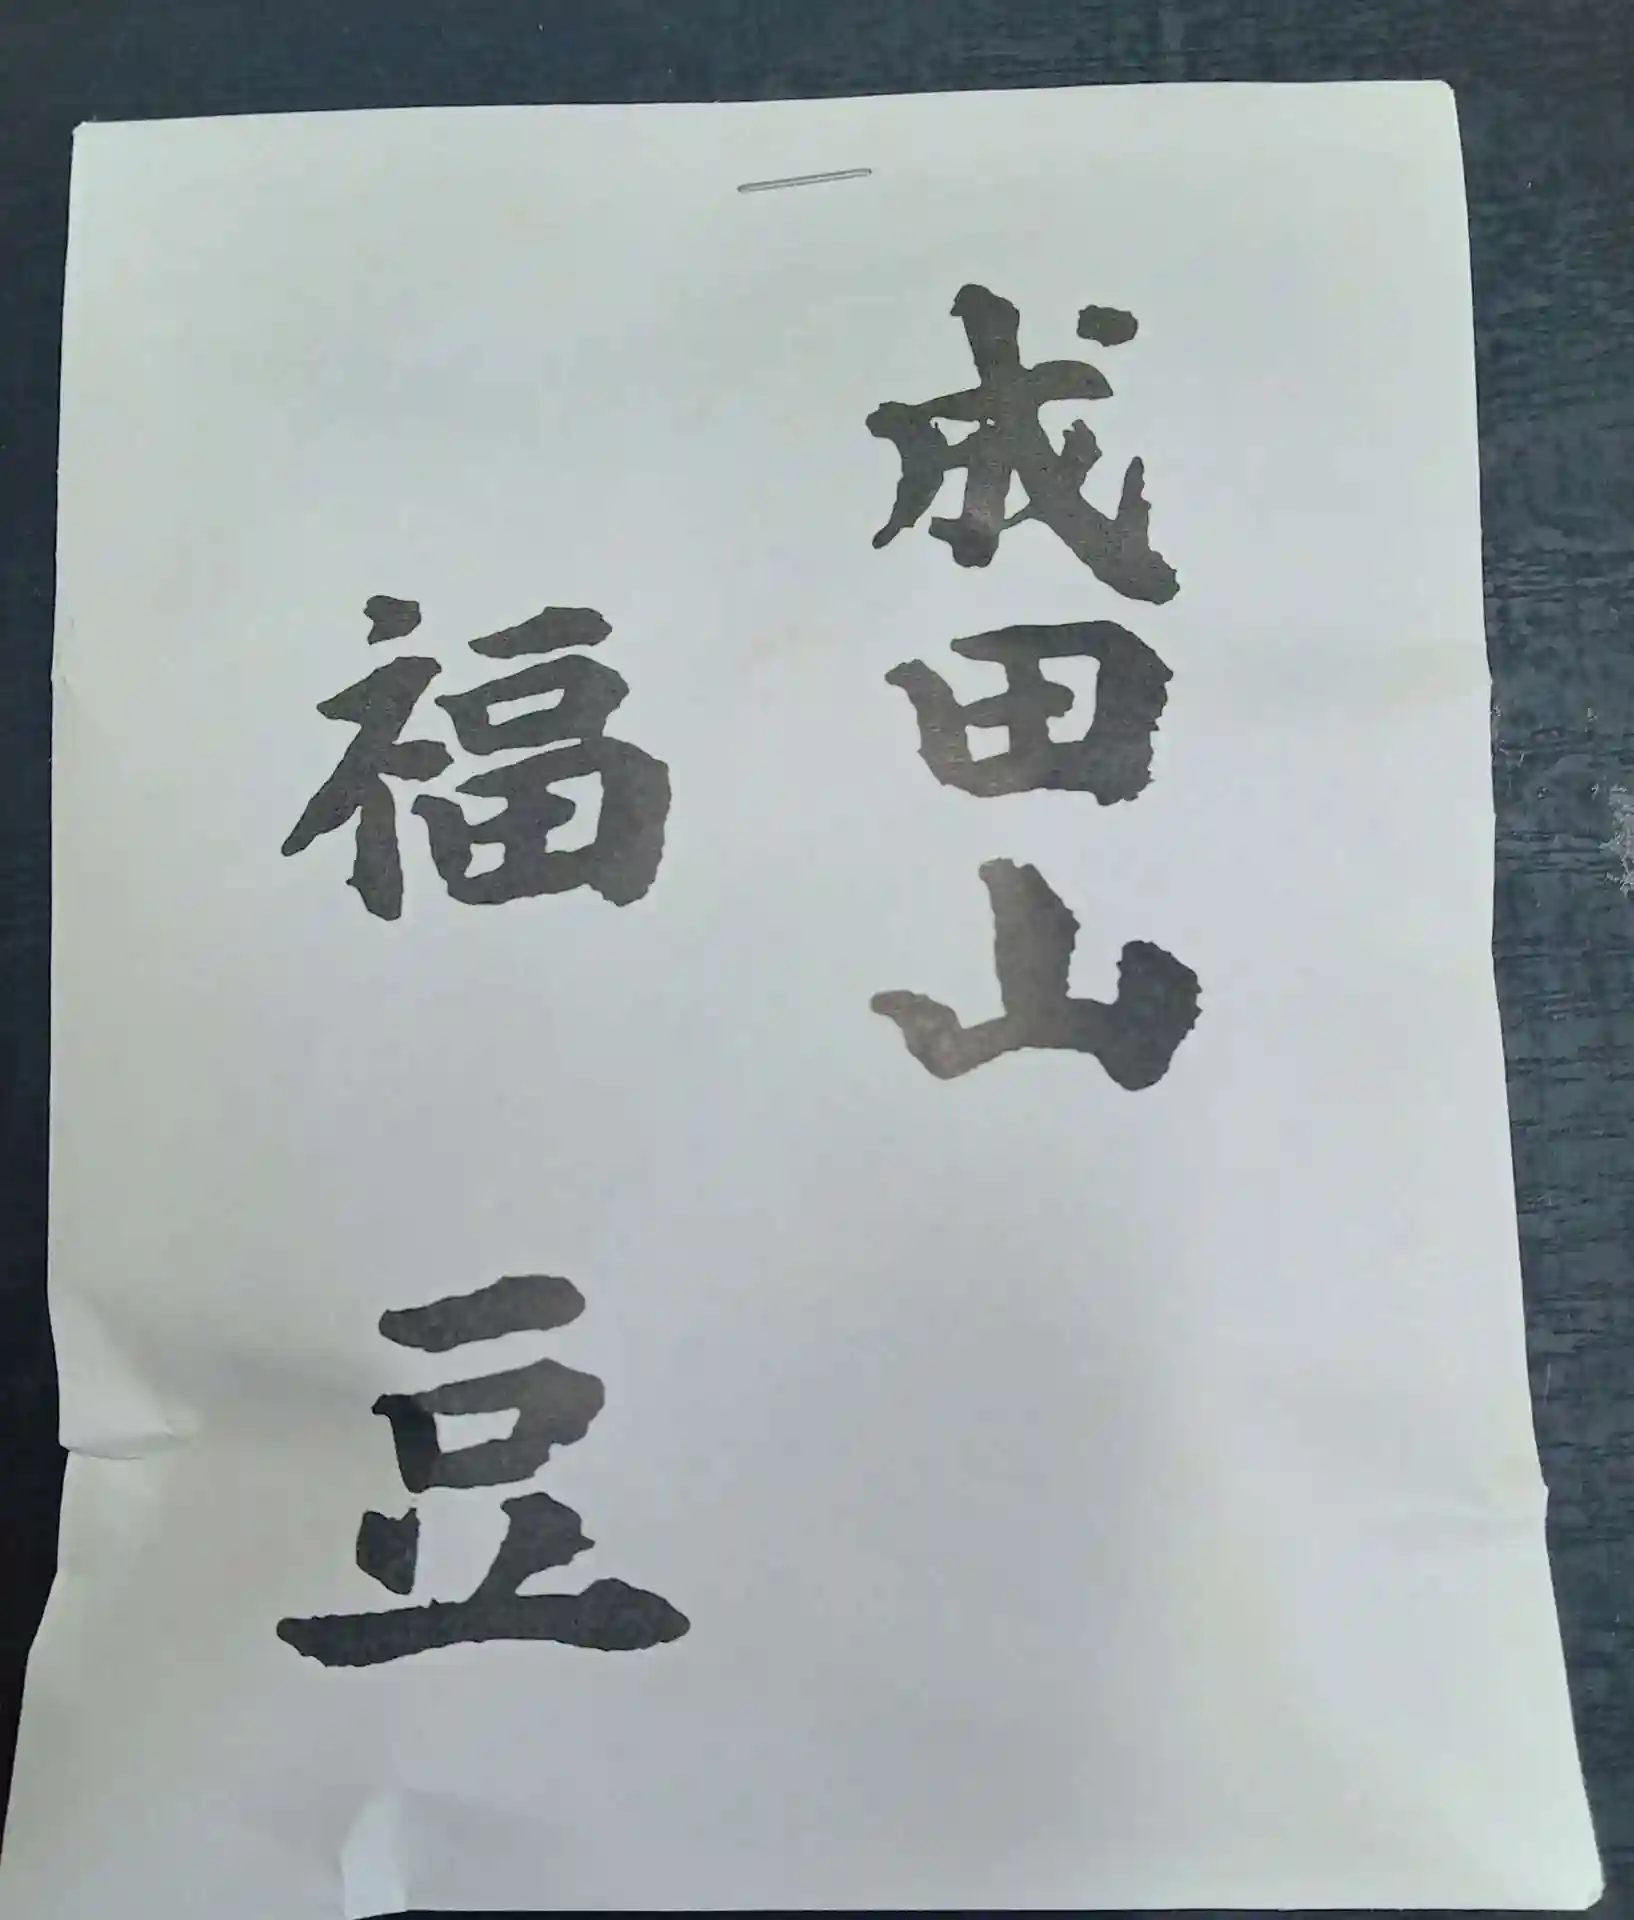 成田山
福豆